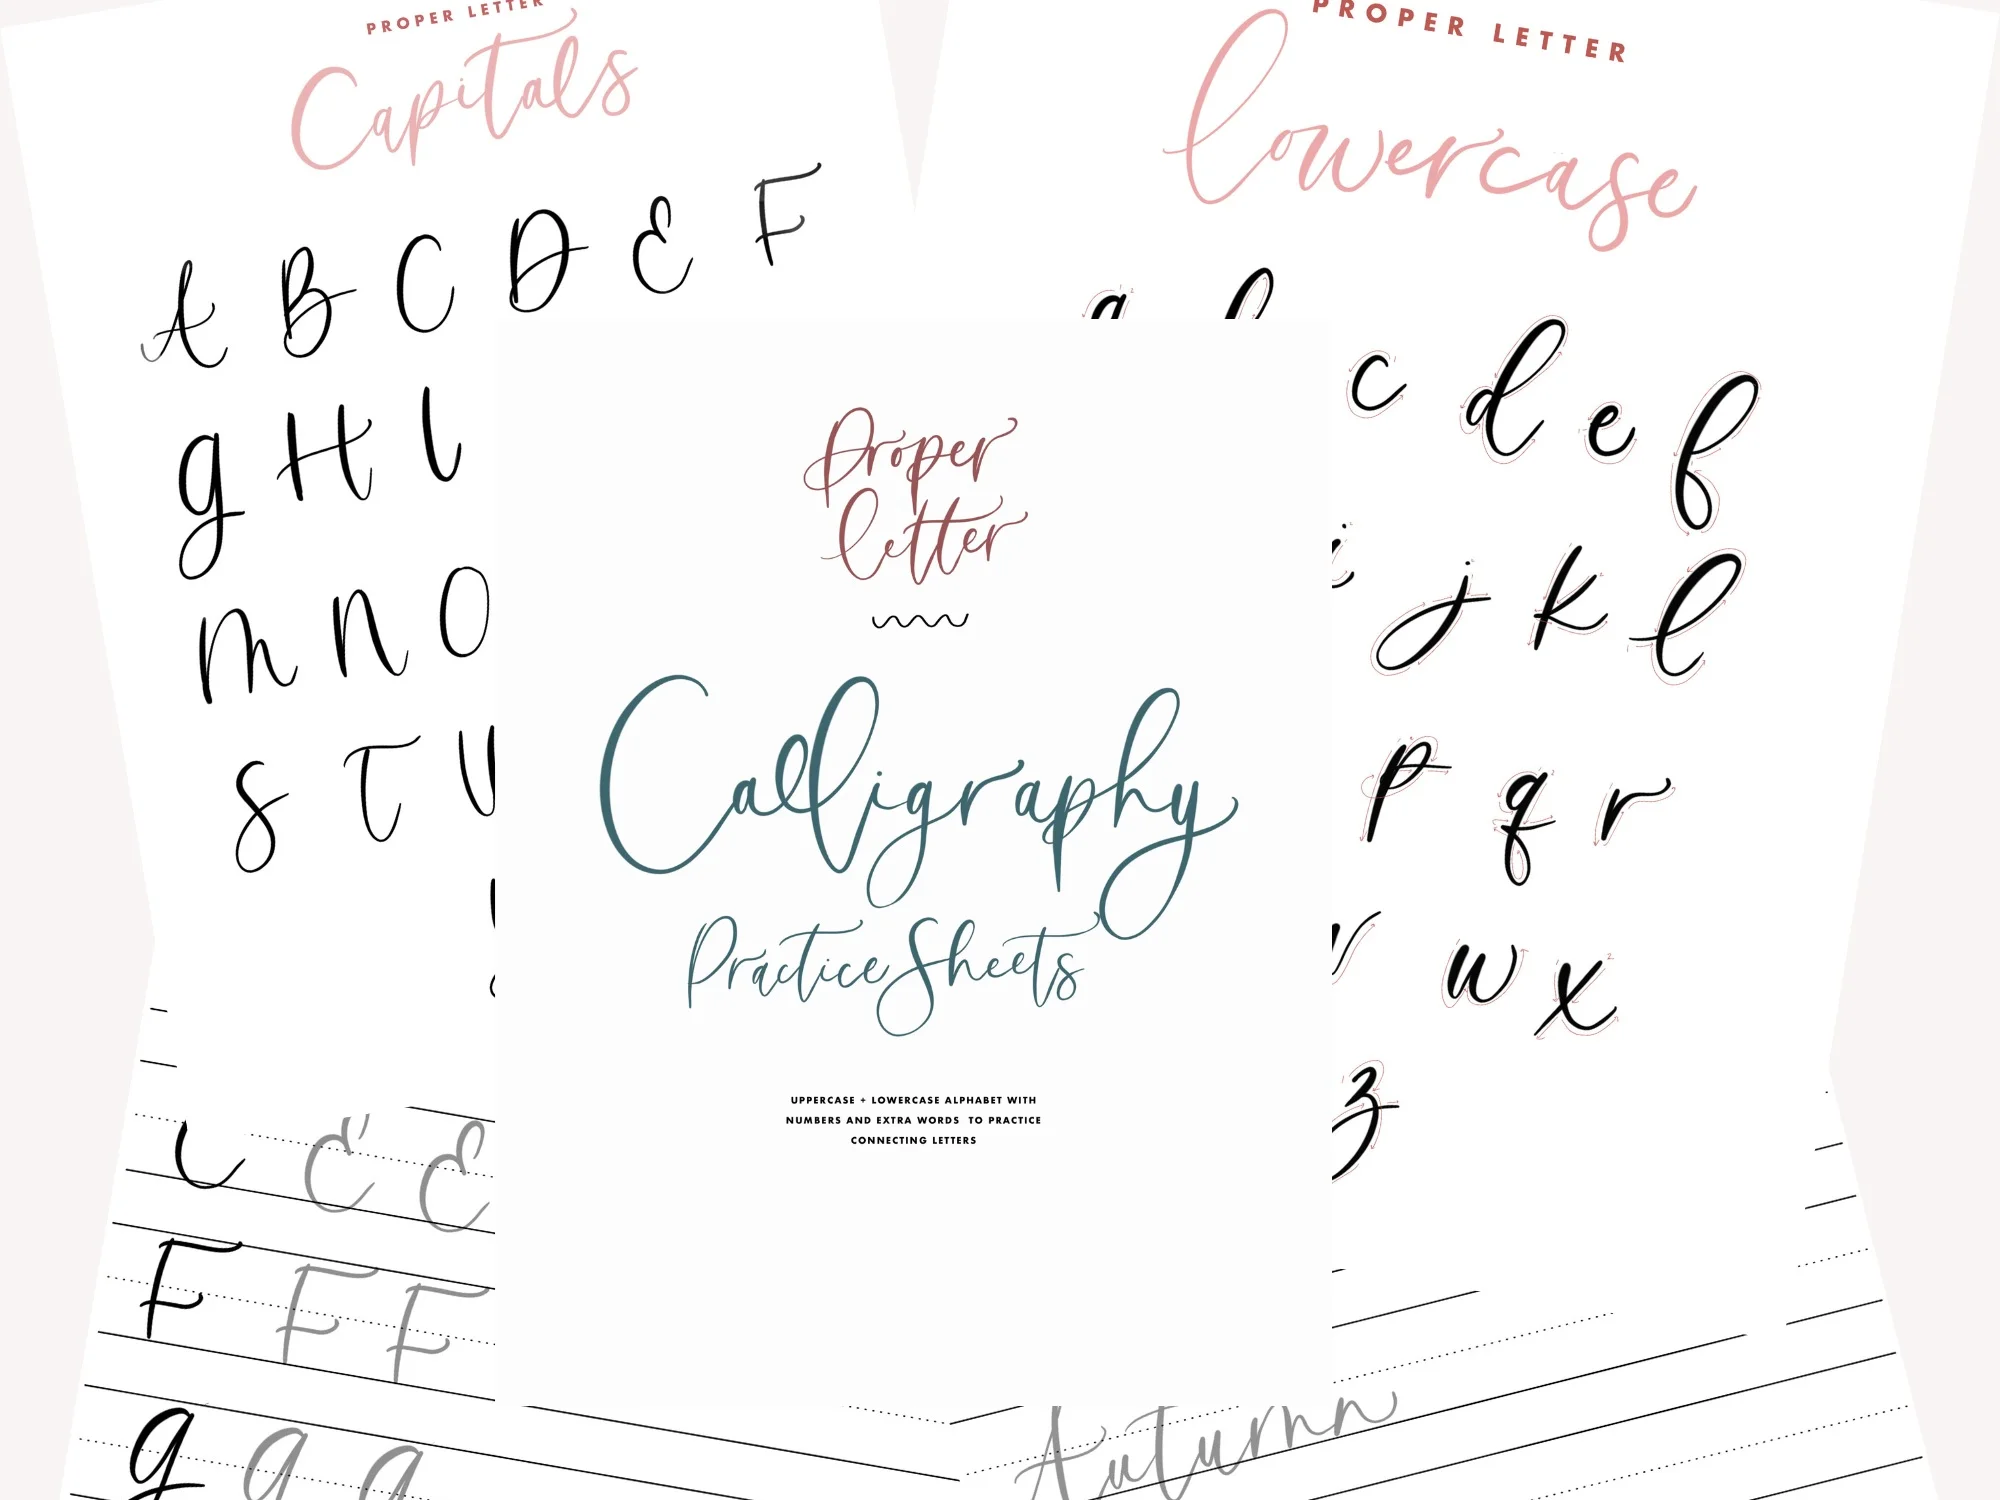 PROPER LETTER
Capitals
A B C D E F
g H I
m n O
S T
E E
F F F
g g g
PROPER LETTER
lowercase
a
c d e f
i j k l
p q r
v w x
z
Autumn
Proper
letter
Calligraphy
Practice Sheets
UPPERCASE + LOWERCASE ALPHABET WITH
NUMBERS AND EXTRA WORDS TO PRACTICE
CONNECTING LETTERS